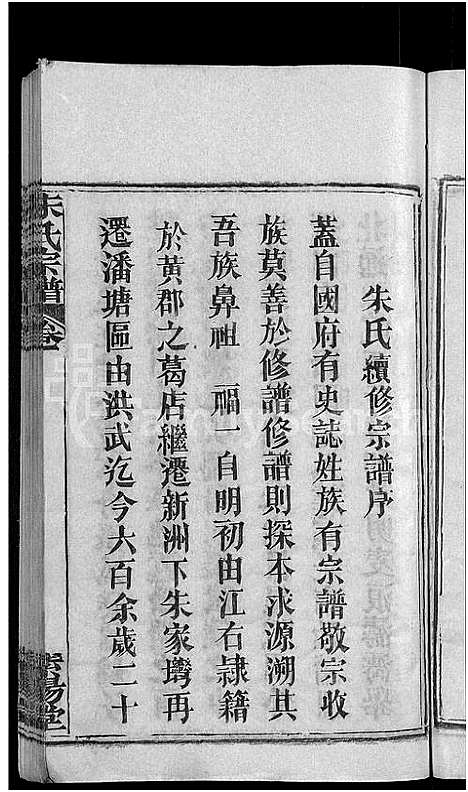 朱氏續修宗譜序
蓋自國府有史誌姓族有宗譜敬宗收
族莫善於修譜修譜則探本求源溯其
吾族鼻祖 福一自明初由江右隸籍
於黃郡之葛店繼遷新洲下朱家塆再
遷潘塘區由洪武迄今六百余歲二十
朱氏宗譜 卷一